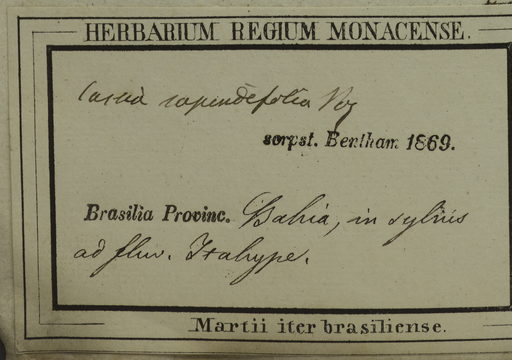 HERBARIUM REGIUM MONACENSE.
Cassia sapindifolia Vog
scrpst. Bentham 1869.
Brasilia Provinc. Bahia, in sylvis
ad fluv. Itahype.
Martii iter brasiliense.